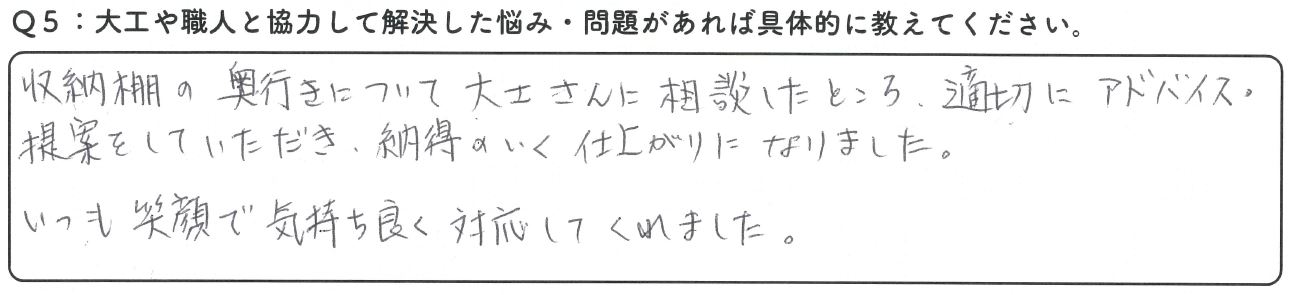 Q5：大工や職人と協力して解決した悩み・問題があれば具体的に教えてください。
収納棚の奥行きについて大工さんに相談したところ、適切にアドバイス・
提案をしていただき、納得のいく仕上がりになりました。
いつも笑顔で気持ち良く対応してくれました。